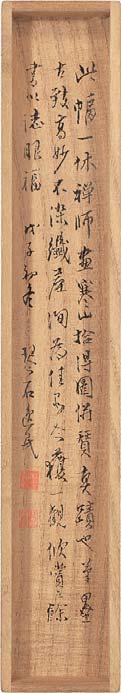 此幅一休禅師画寒山拾得図併賛真蹟也筆墨
古致高妙不染繊塵洵為佳品也獲一観欣賞之餘
書以誌眼福　戊子初冬　　石道民